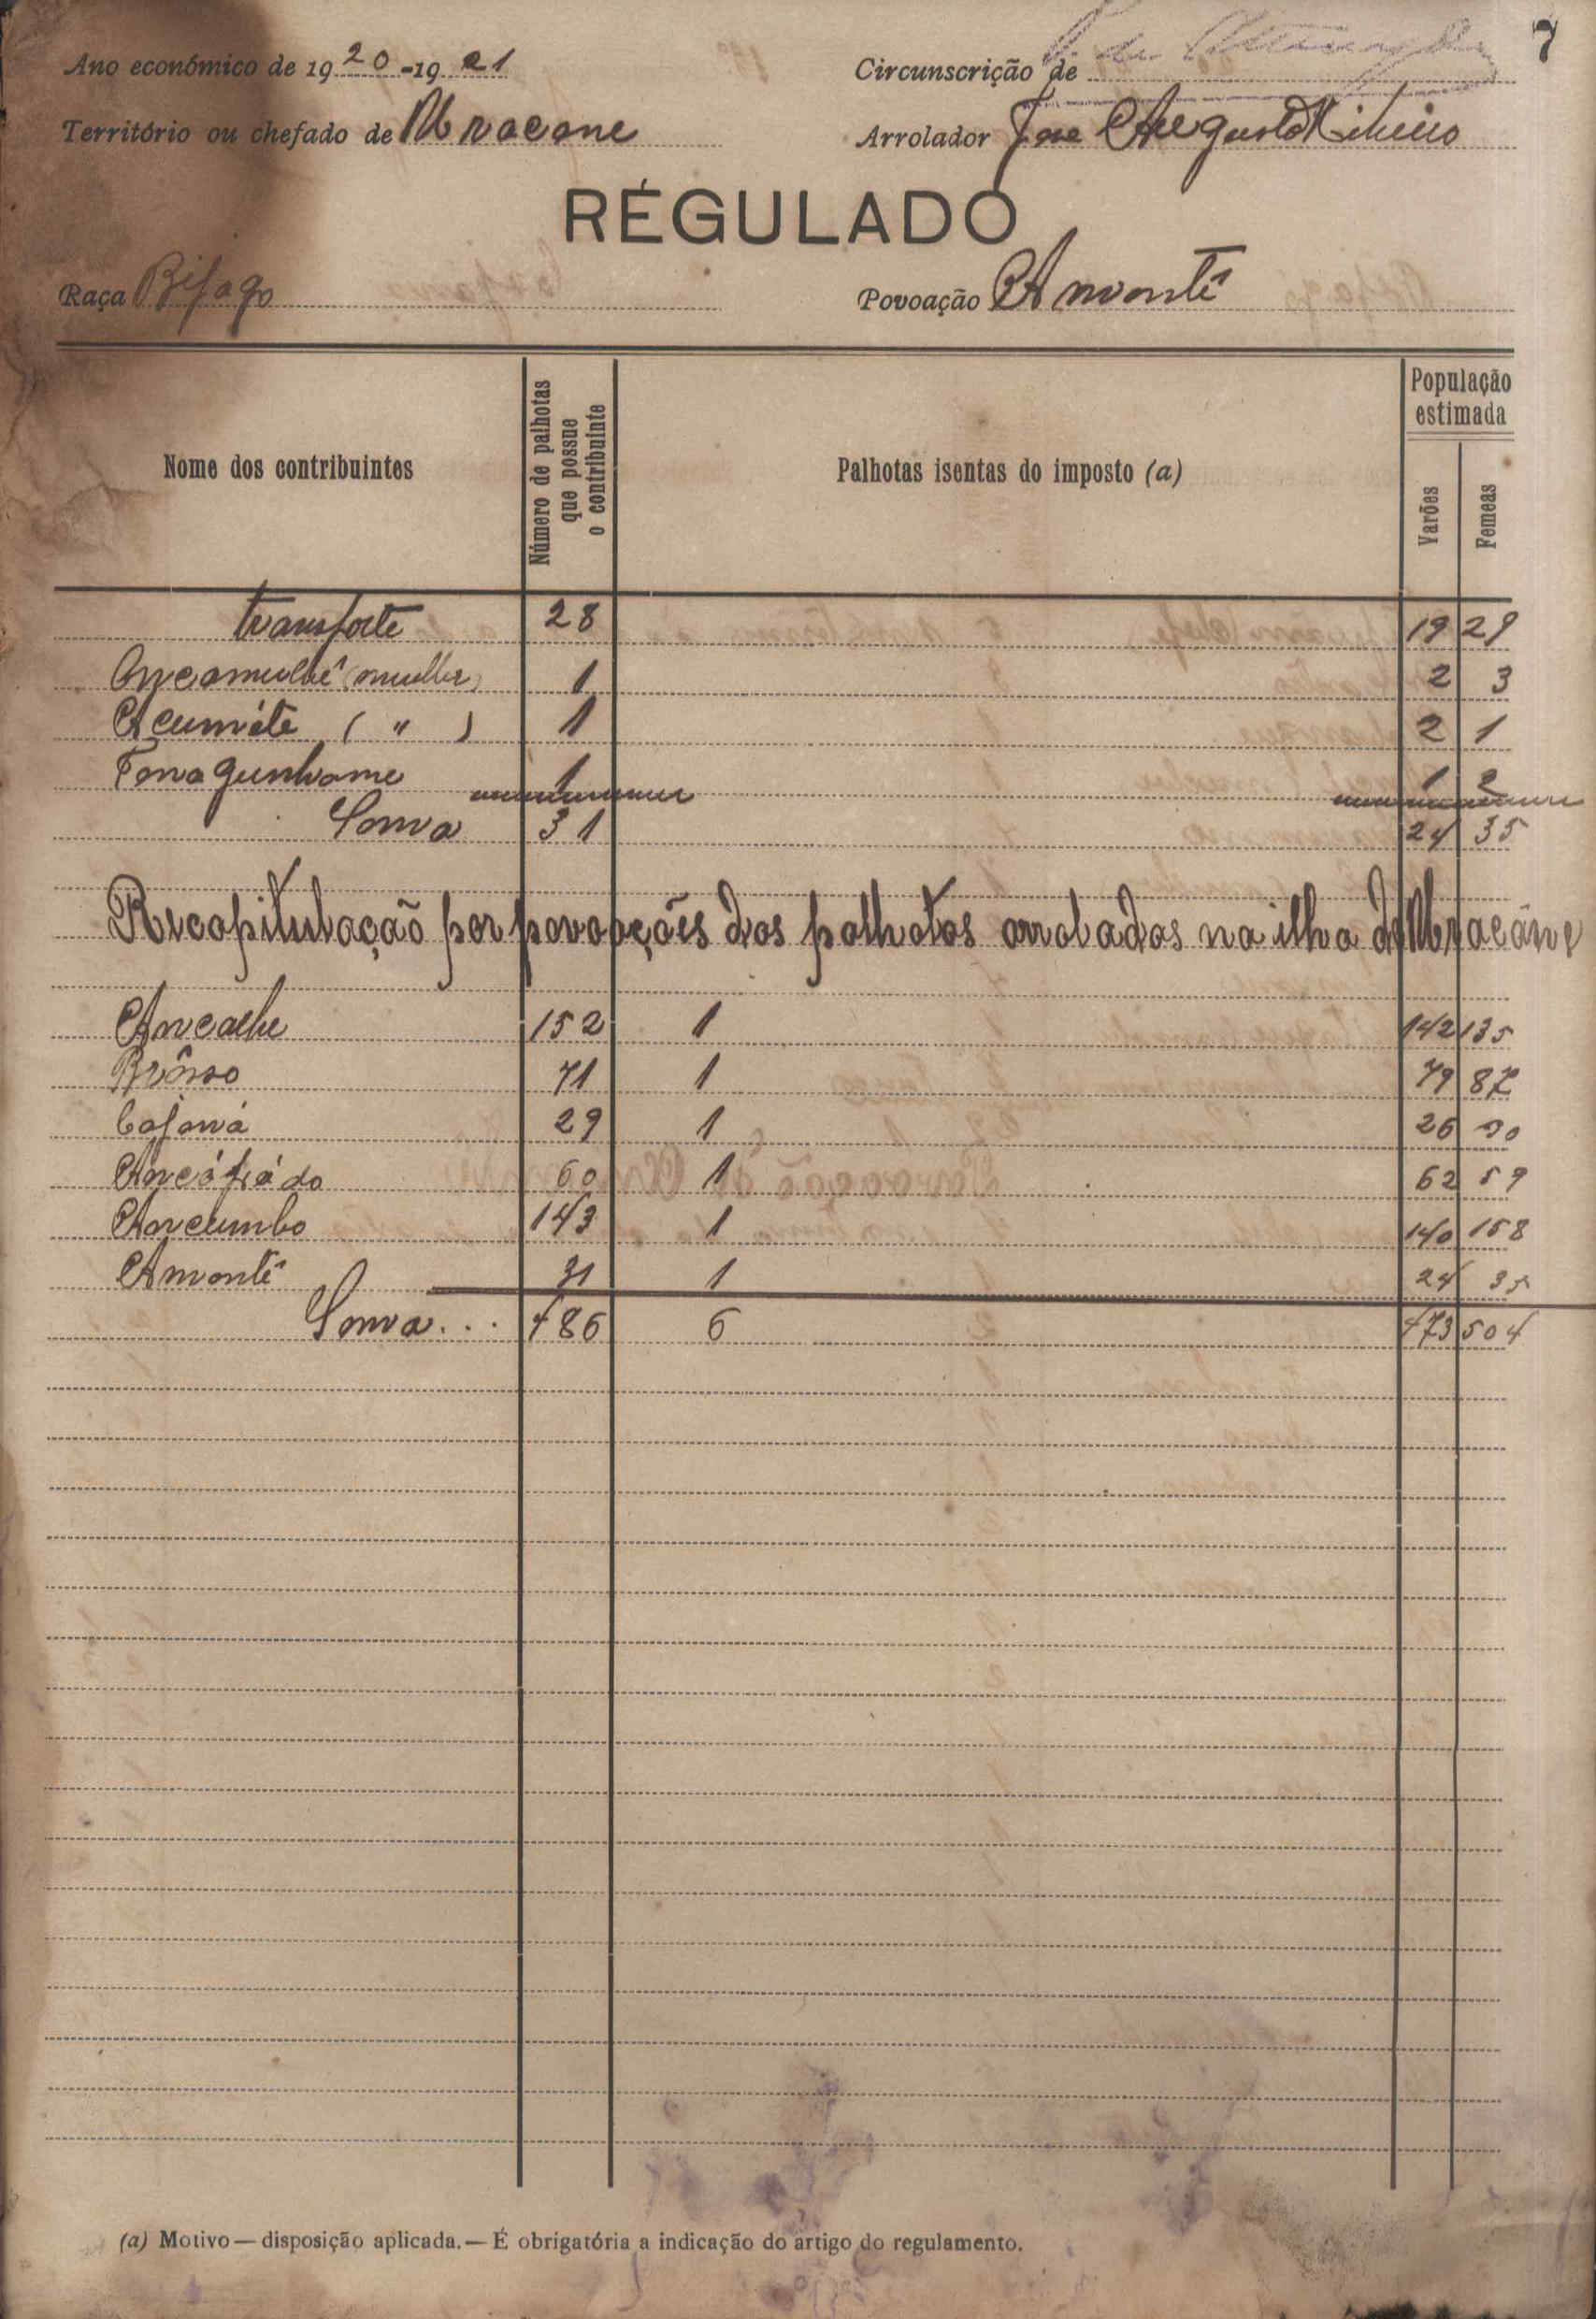 7
Ano económico de 1920-1921
Circunscrição de
Território ou chefado de Uracane
Arrolador José Augusto Ribeiro
RÉGULADO
Raça Bijago
Povoação Amontê
Nome dos contribuintes
Número de palhotas que possue o contribuinte
Palhotas isentas do imposto (a)
População estimada
Varões
Femeas
transporte 28 19 29
(mulher) 1 2 3
Acumête ( " ) 1 2 1
1 1 2
Soma 31 24 35
Recapitulação por povoações das palhotas arroladas na ilha de Uracáne
Ancalhe 152 1 142 135
71 1 79 87
Cajaná 29 1 26 30
60 1 62 59
Ancumbo 143 1 140 158
Amontê 31 1 24 35
Soma... 486 6 473 504
(a) Motivo — disposição aplicada. — É obrigatória a indicação do artigo do regulamento.